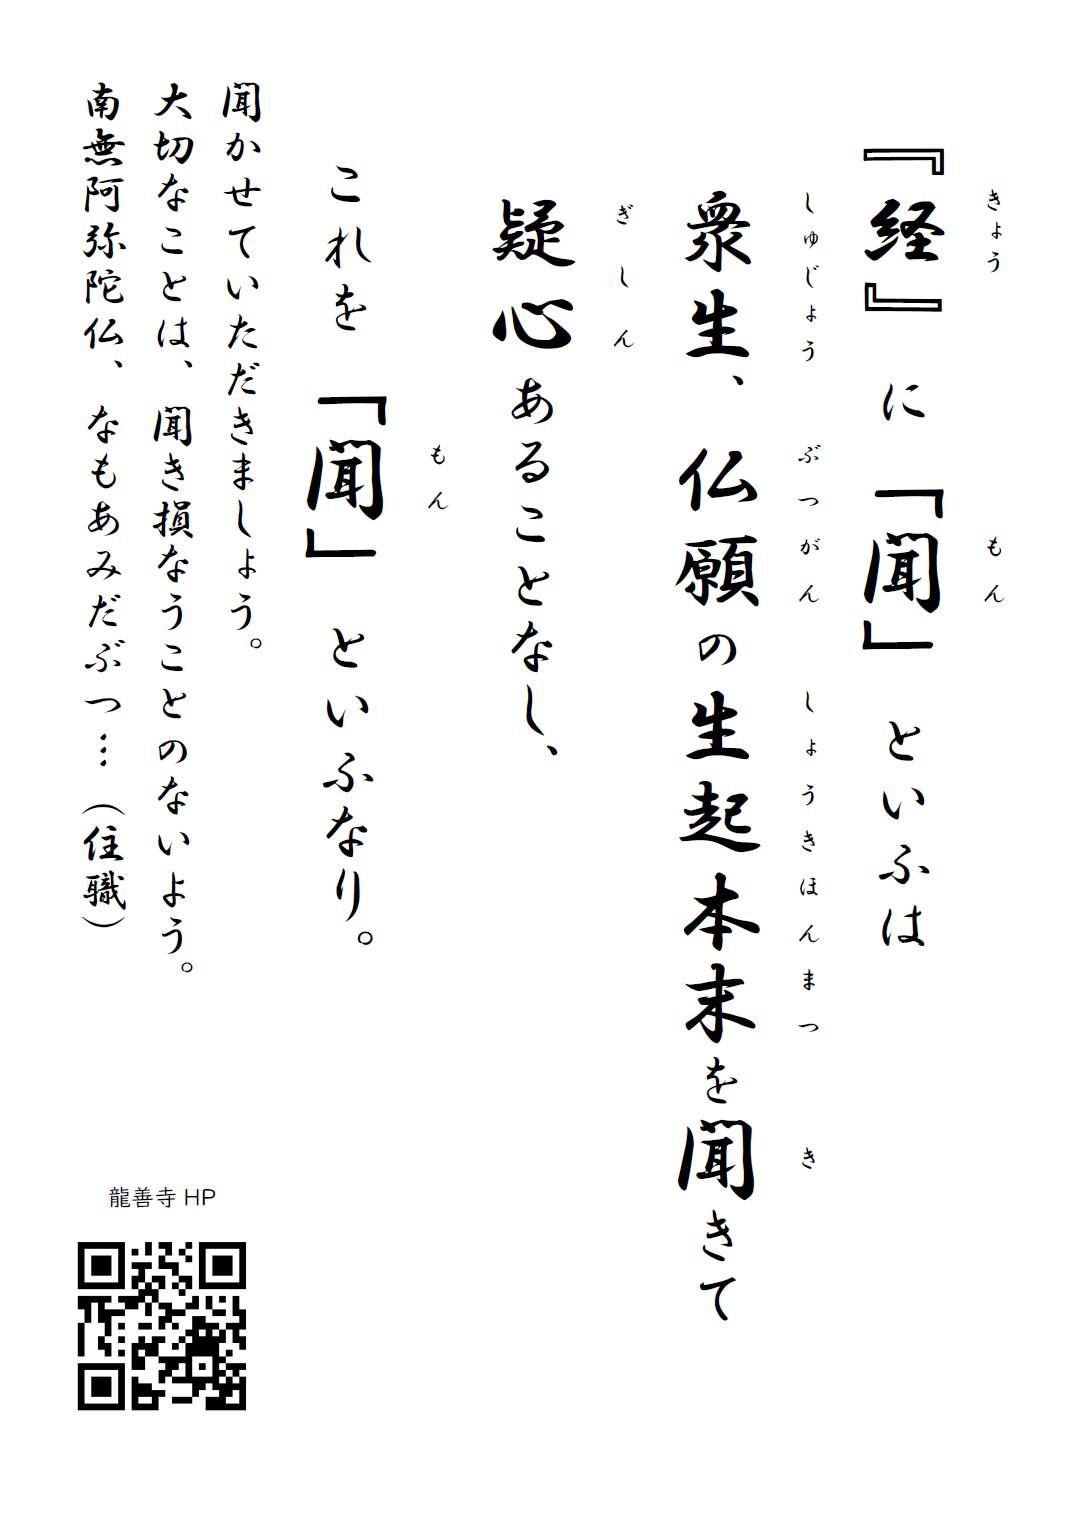 『経』に「聞」といふは
きょう
もん
衆生、仏願の生起本末を聞きて
しゅじょう
ぶつがん
しょうきほんまつ
き
疑心あることなし、
ぎしん
これを「聞」といふなり。
もん
聞かせていただきましょう。
大切なことは、聞き損なうことのないよう。
南無阿弥陀仏、なもあみだぶつ…（住職）
龍善寺 HP